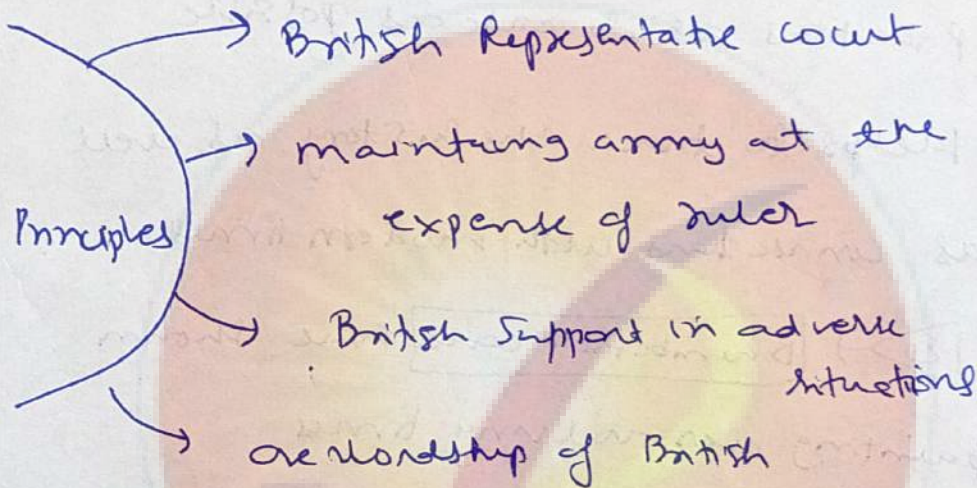 British Representative court
maintaing army at the
expense of ruler
Principles
British Support in adverse
situations
overlordship of British